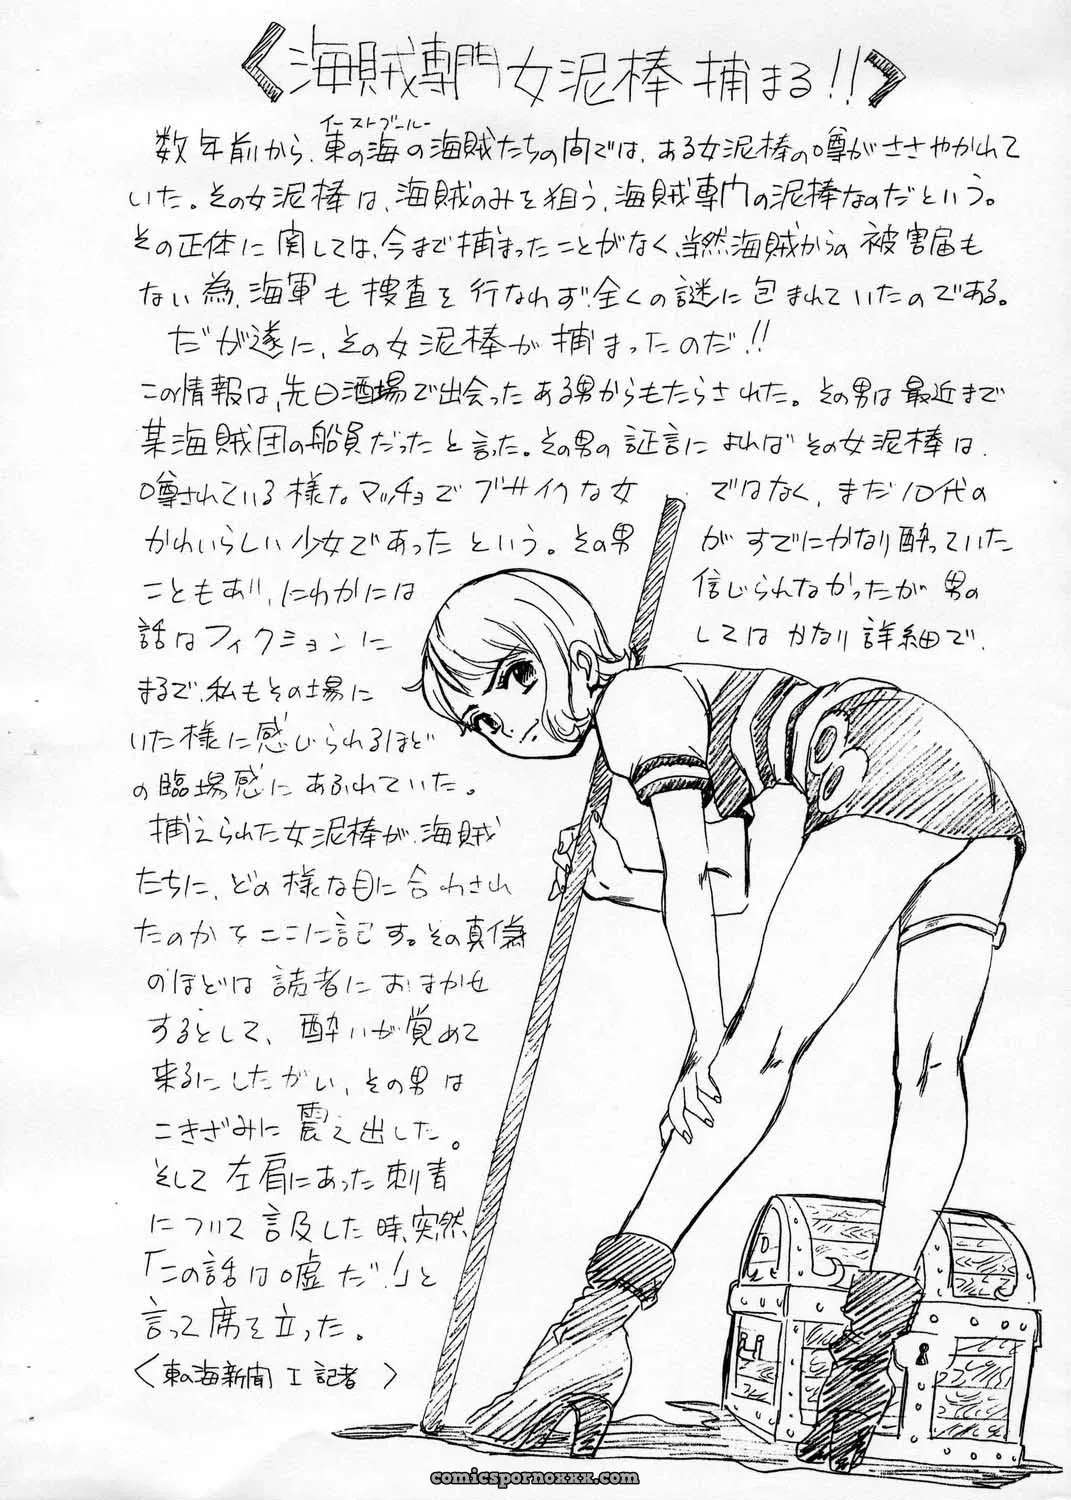 ＜海賊専門女泥棒 捕まる!!＞
イーストブルー
数年前から、東の海の海賊たちの間では、ある女泥棒の噂がささやかれて
いた。その女泥棒は、海賊のみを狙う、海賊専門の泥棒なのだという。
その正体に関しては、今まで捕まったことがなく、当然海賊からの被害届も
ない為、海軍も捜査を行なわれず、全くの謎に包まれていたのである。
だが遂に、その女泥棒が捕まったのだ!!
この情報は、先日酒場で出会ったある男からもたらされた。その男は最近まで
某海賊団の船員だったと言った。その男の証言によればその女泥棒は、
噂されている様なマッチョでブサイクな女ではなく、まだ10代の
かわいらしい少女であったという。その男がすでにかなり酔っていた
こともあり、にわかには信じられなかったが男の
話はフィクションにしてはかなり詳細で、
まるで、私もその場に
いた様に感じられるほど
の臨場感にあふれていた。
捕えられた女泥棒が、海賊
たちに、どの様な目に合わされ
たのかをここに記す。その真偽
のほどは読者におまかせ
するとして、酔いが覚めて
来るにしたがい、その男は
こきざみに震え出した。
そして左肩にあった刺青
について言及した時、突然
「この話は嘘だ!」と
言って席を立った。
＜東の海新聞 I 記者＞
comicspornoxxx.com